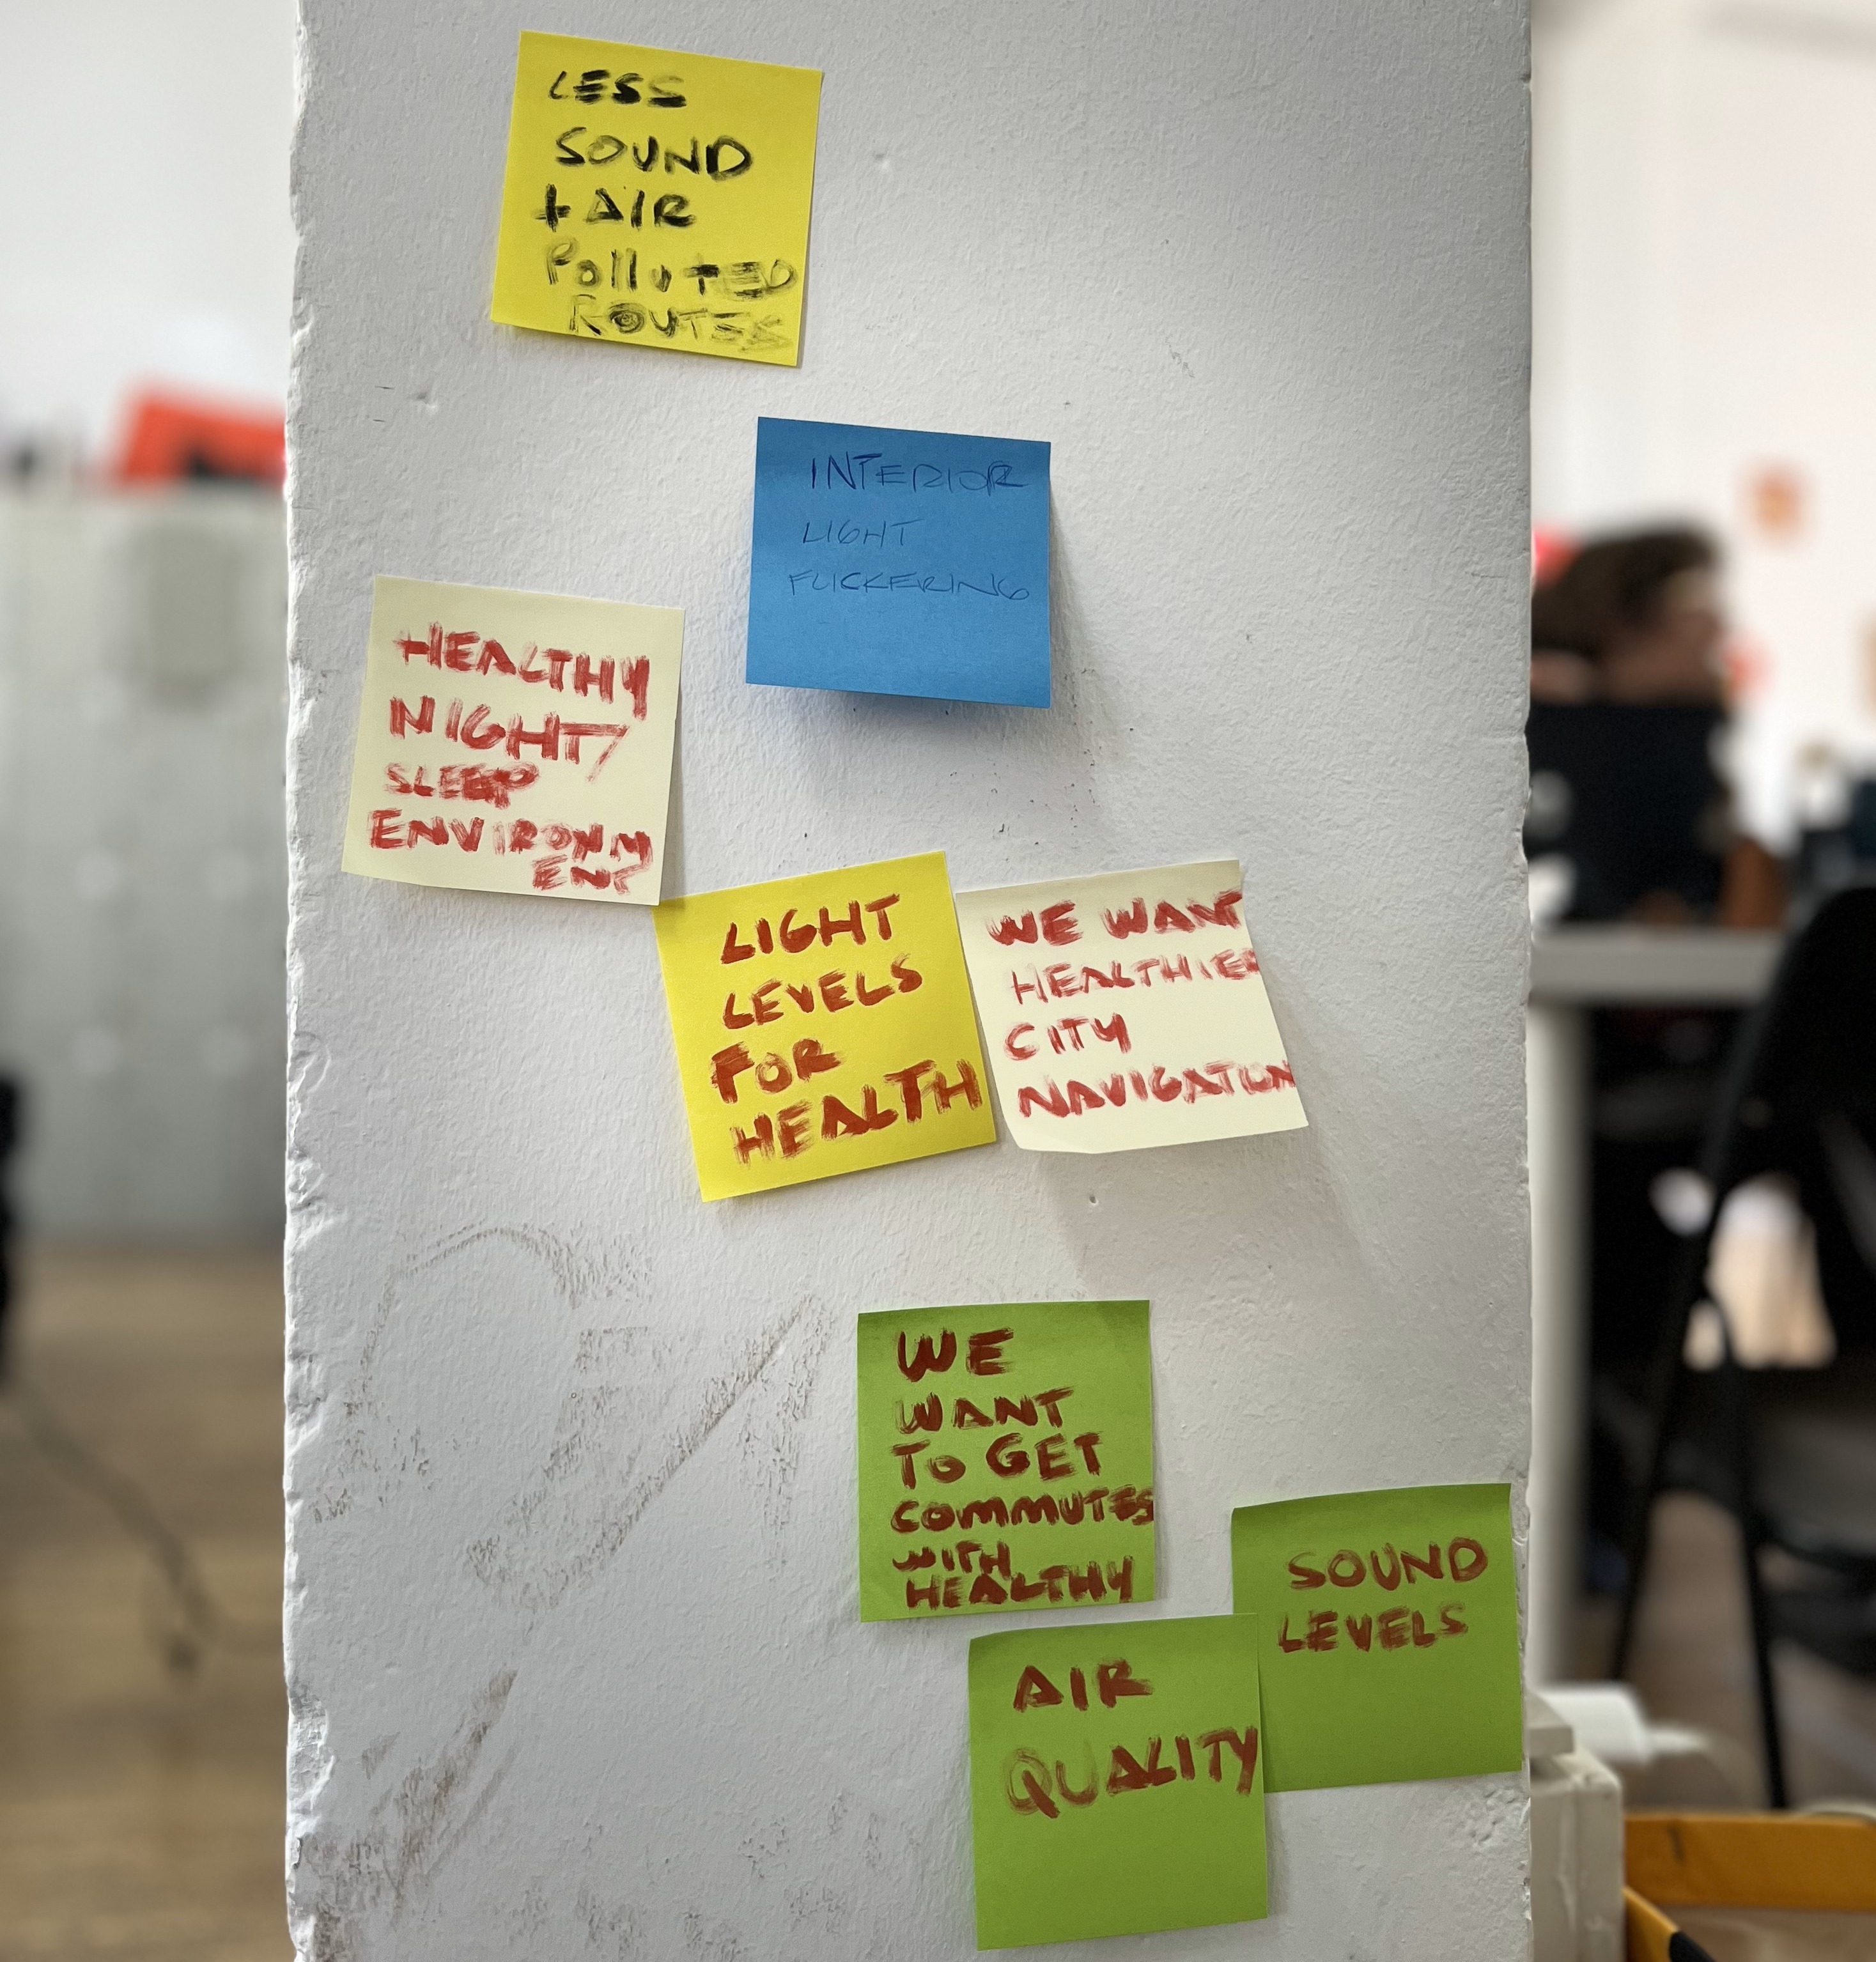 LESS
SOUND
+ AIR
Polluted
ROUTES
INTERIOR
LIGHT
FLICKERING
HEALTHY
NIGHT/
SLEEP
ENVIRONM
ENT
LIGHT
LEVELS
FOR
HEALTH
WE WANT
HEALTHIER
CITY
NAVIGATION
WE
WANT
TO GET
COMMUTES
WITH
HEALTHY
SOUND
LEVELS
AIR
QUALITY